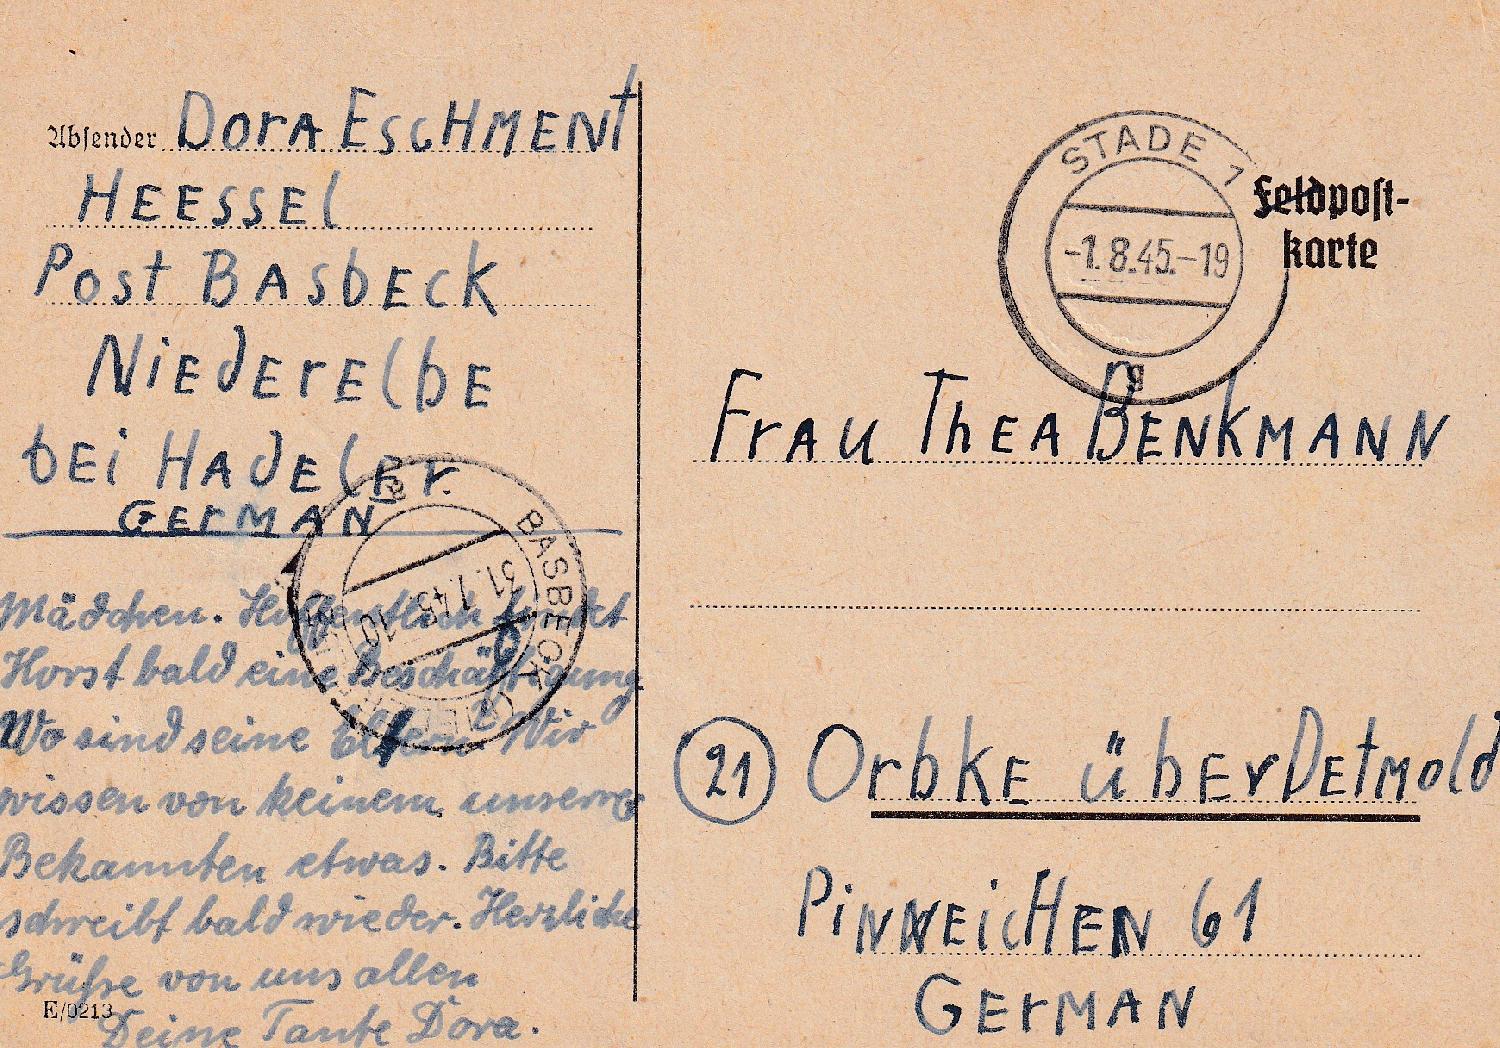 Absender Dora Eschment
Heessel
Post Basbeck
Niederelbe
bei Hadeler.
German
Mädchen. Hoffentlich findet
Horst bald eine Beschäftigung
Wo sind seine Eltern Wir
wissen von keinem unserer
Bekannten etwas. Bitte
schreibt bald wieder. Herzliche
Grüße von uns allen
Deine Tante Dora.
E/0213
BASBECK
31.7.45-10
a
STADE 1
-1.8.45.-19
g
Feldpost-
karte
Frau Thea Benkmann
21 Orbke über Detmold
Pinneichen 61
German